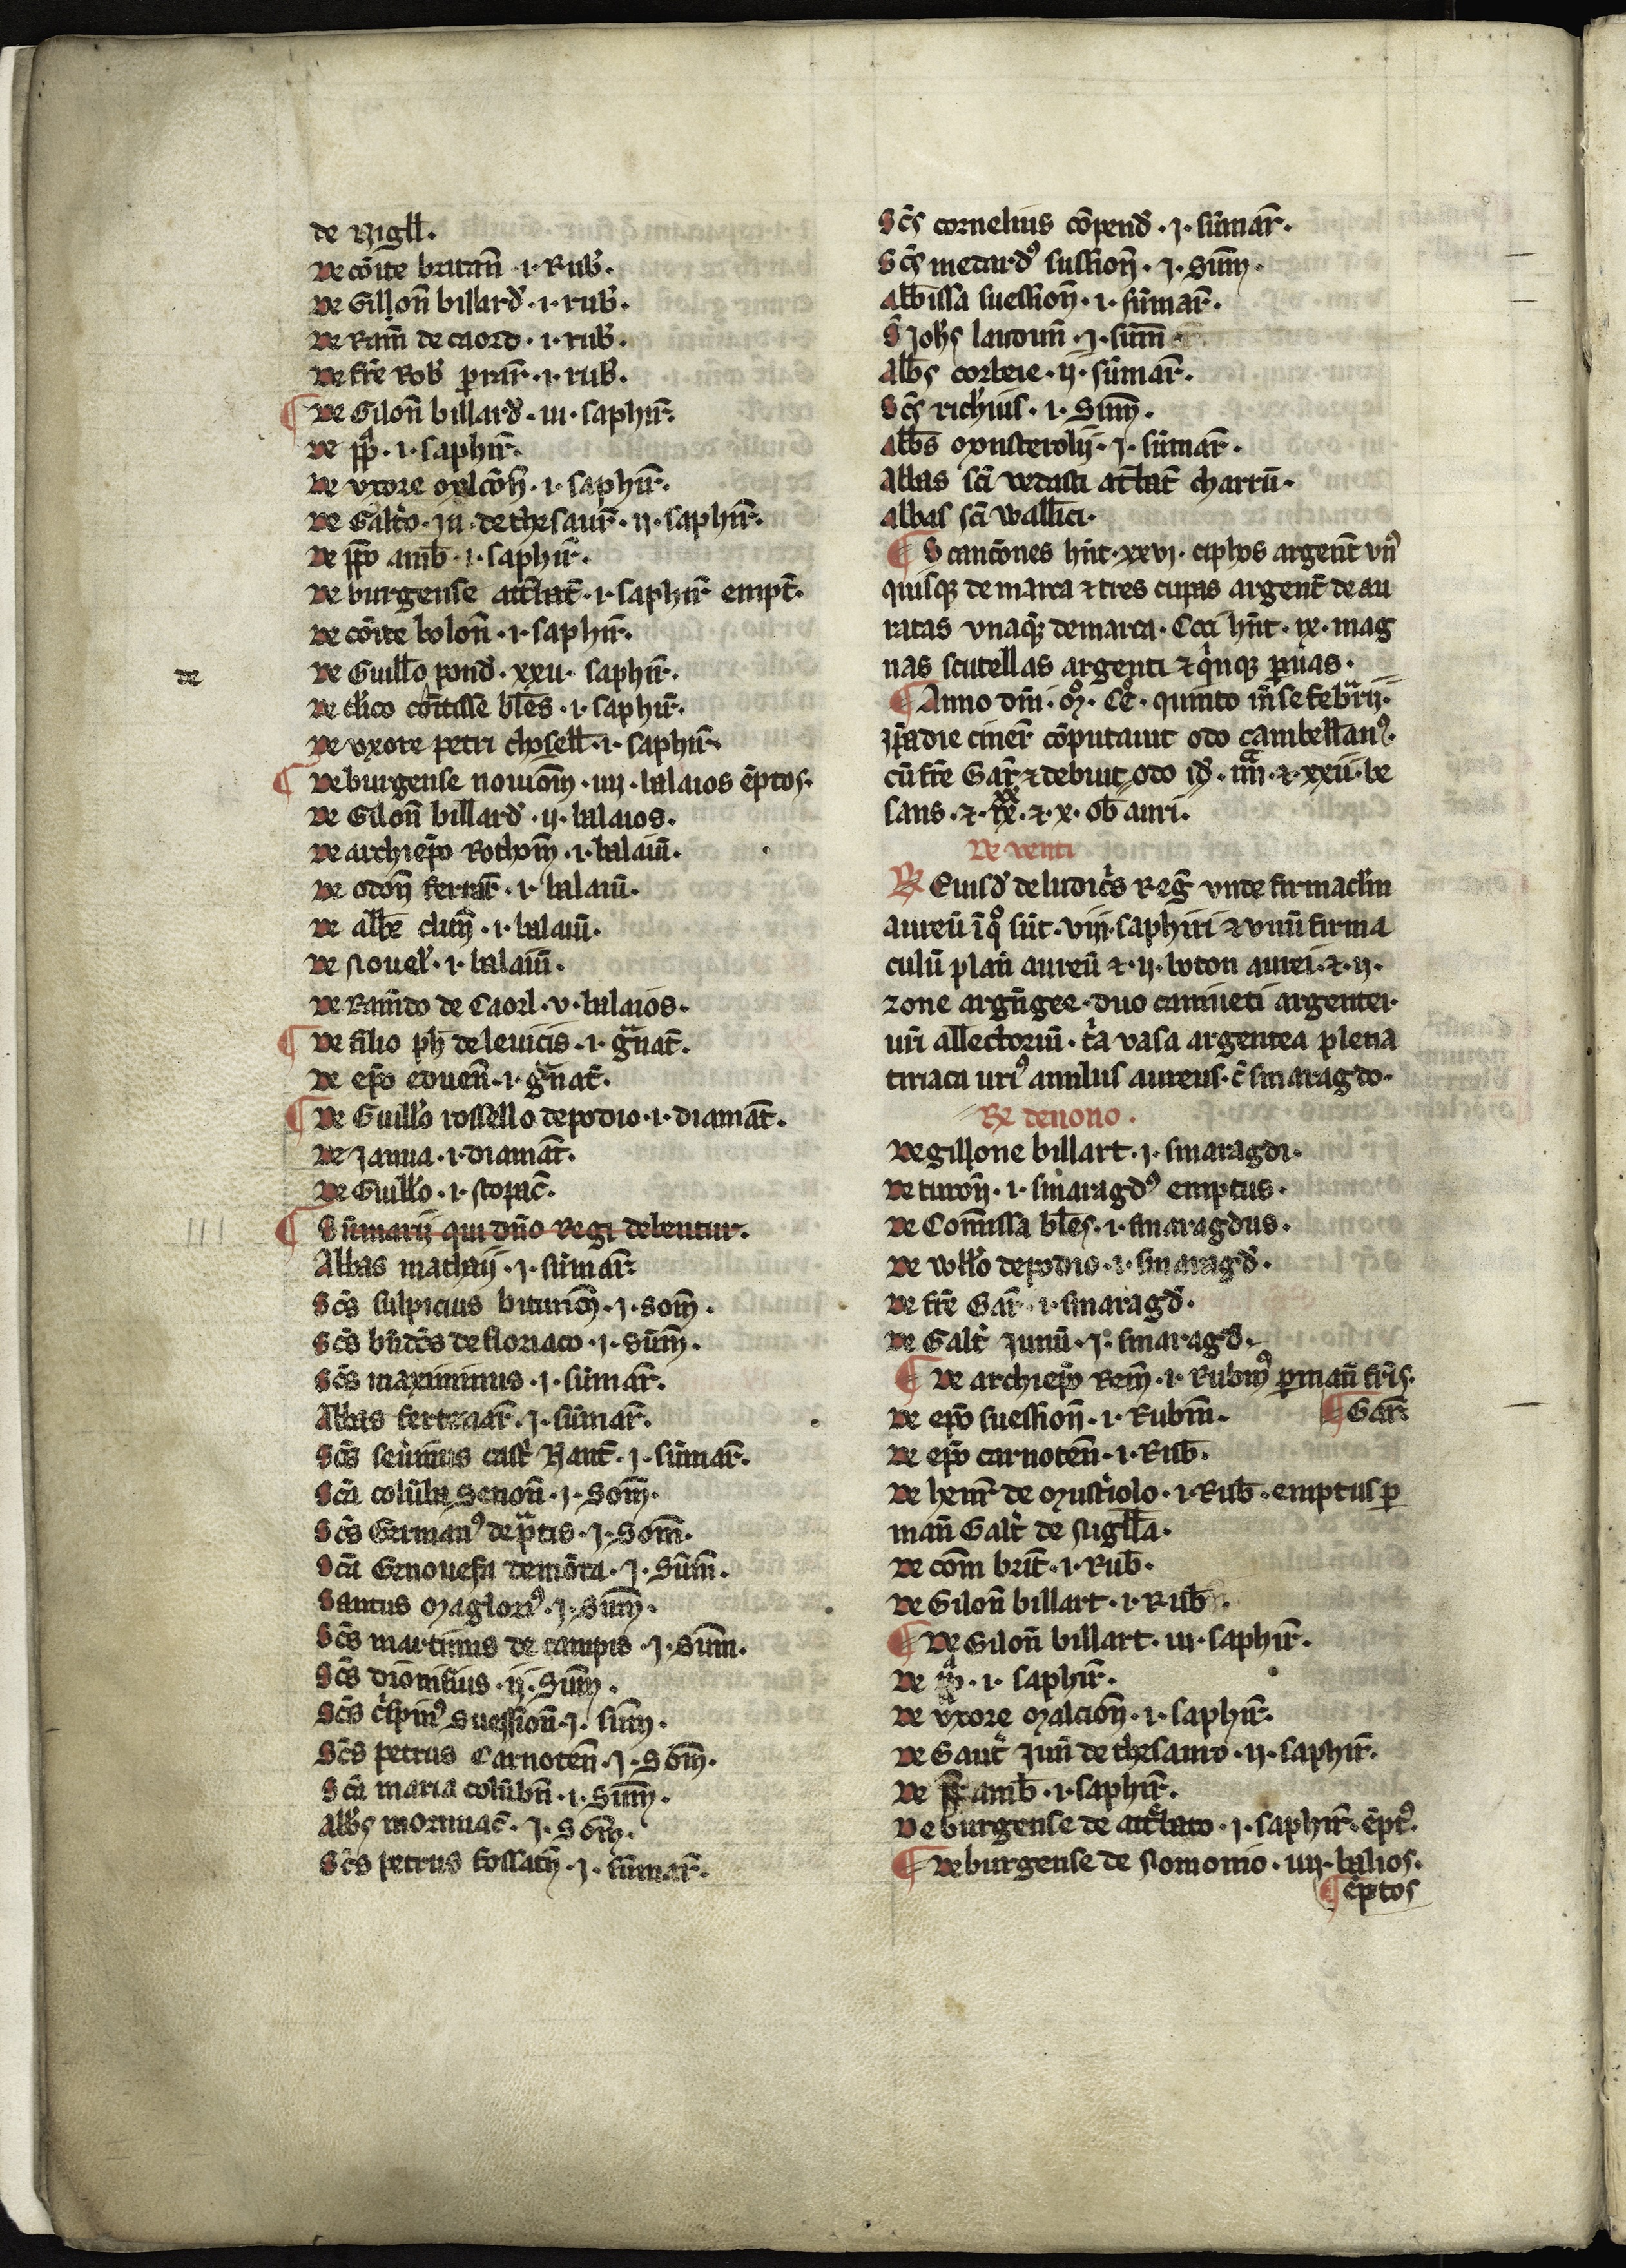 de Nigll̃.
De cõite britañ .i. Rub̃.
De Gilloñ billard̃ .i. rub̃.
De Raim̃ de caord .i. rub̃.
De fr̃e Rob̃ .i. rub̃.
¶ De Giloñ billard̃ .iii. saphir̃.
De pp̃ .i. saphir̃.
De vxore .i. saphir̃.
De Galt̃o .iu. de thesaur̃ .ii. saphir̃.
De amb̃ .i. saphir̃.
De burgense attrat̃ .i. saphir̃ empt̃.
De cõite boloñ .i. saphir̃.
de
De Guill̃o pond̃ .xxii. saphir̃.
De cl̃ico cõitisse bl̃es .i. saphir̃.
De vxore petri chosell̃ .i. saphir̃.
¶ De burgense nouiom̃ .iiij. balaios ẽptos.
De Giloñ billard̃ .ii. balaios.
De archiep̃o Rothom̃ .i. balaiũ.
De odoñ ferrar̃ .i. balaiũ.
De abb̃e cluñ .i. balaiũ.
De Nouel̃ .i. balaiũ.
De Raim̃do de Caorl .v. balaios.
¶ De filio ph̃ de leuicis .i. g̃nat̃.
De ep̃o eduen̄ .i. g̃nat̃.
¶ De Guill̃o rossello de podio .i. diamãt.
De Janua .i. diamãt.
De Guill̃o .i. stopac̃.
¶ Sũmarij qui dño Regi debentur.
Abbas mathaij .j. sũmar̃.
Sc̃s sulpicius bituric̃ .j. som̃.
Sc̃s bñdc̃s de floriaco .j. Sũm̃.
Sc̃s maximinus .j. sũmar̃.
Abbas ferrariar̃ .j. sũmar̃.
Sc̃s seũinus cast̃ Nant̃ .j. sũmar̃.
Sc̃a colũba senoñ .j. Som̃.
Sc̃s Germanꝰ de p̃tis .j. Som̃.
Sc̃a Genouefa de mõte .j. Sũm̃.
Santus Maglorꝰ .j. Sũm̃.
Sc̃s martinus de campis .j. Sum̃.
Sc̃s dionisius .ij. Sũm̃.
Sc̃s c̃spinꝰ suessioñ .j. sum̃.
Sc̃s petrus Carnoteñ .j. Som̃.
Sc̃a maria colũbñ .i. Sum̃.
Abb̃s mormac̃ .j. Som̃.
Sc̃s petrus fossatñ .j. sũmar̃.
Sc̃s cornelius cõpend̃ .j. sũmar̃.
Sc̃s medardꝰ suession̄ .j. Sum̃.
Abb̃issa suession̄ .i. sũmar̃.
S̃ joh̃s laudun̄ .j. sum̃
Abb̃s corbeie .ij. sũmar̃.
Sc̃s richiĩs .i. Sum̃.
Abb̃s Monsterolij .j. sũmar̃.
Abbas sc̃i vedasti at̃bat̃ charrũ.
Abbas sc̃i wall̃ici.
¶ S cancones hñt .xxvj. ciphos argent̃ vnꝰ
quisq; de marca ⁊ tres cupas argent̃ de au
ratas vnaq̃; de marca. hñt .ix. mag
nas scutellas argenti ⁊ q̃nq; p̃uas.
¶ Anno dñi .M̊. CC̊. quinto m̃se febr̃ij.
jp̃a die ciner̃ cõputauit odo cambell̃anꝰ.
cũ fr̃e Gar̃ ⁊ debuit odo .iiij. ⁊ .xxii. be
sans. ⁊ .ix. ⁊ .x. ob̃ auri.
De venti
Eiusd̃ de ludic̃s Reg̃ vnde firmacl̃m
aureũ ĩ q̊ sũt .viij. saphiri ⁊ vnũ firma
culũ plan̄ aureũ ⁊ .ij. boton aurei. ⁊ .ij.
zone argñgee. duo caniueti argentei.
uñ allectoriũ. t̃a vasa argentea plena
tiriaca unꝰ anulus aureus. c̃ smaragdo.
Rx̃ de nono.
De gillone billart .j. smaragdi.
De turoñ .i. smaragdꝰ emptus.
De Comĩssa bl̃es .i. smaragdus.
De will̃o de podio .i. smaragd̃.
De fr̃e Gar̃ .i. smaragd̃.
De Galt̃ Junũ .j. smaragd̃.
¶ De archiep̃o Rem̃ .i. Rubinꝰ p̱ man̄ fr̃is.
¶ Gar̃.
De ep̃o suession̄ .i. Rubiñ.
De ep̃o carnoteñ .i. Rub̃.
De henr̃ de Must̃iolo .i. Rub̃. emptus p̱
mañ Galt̃ de Nigll̃a.
De com̃ brit̃ .i. Rub̃.
De Giloñ billart .i. Rub̃.
¶ De Giloñ billart .iii. saphir̃.
De .i. saphir̃.
De vxore Malcion̄ .i. saphir̃.
De Gaut̃ Jun̄ de thesauro .ij. saphir̃.
De amb̃ .i. saphir̃.
De burgense de att̃bato .j. saphir̃. ẽptꝰ.
¶ De burgense de Nomonio .iiij. balios.
¶ ẽptos